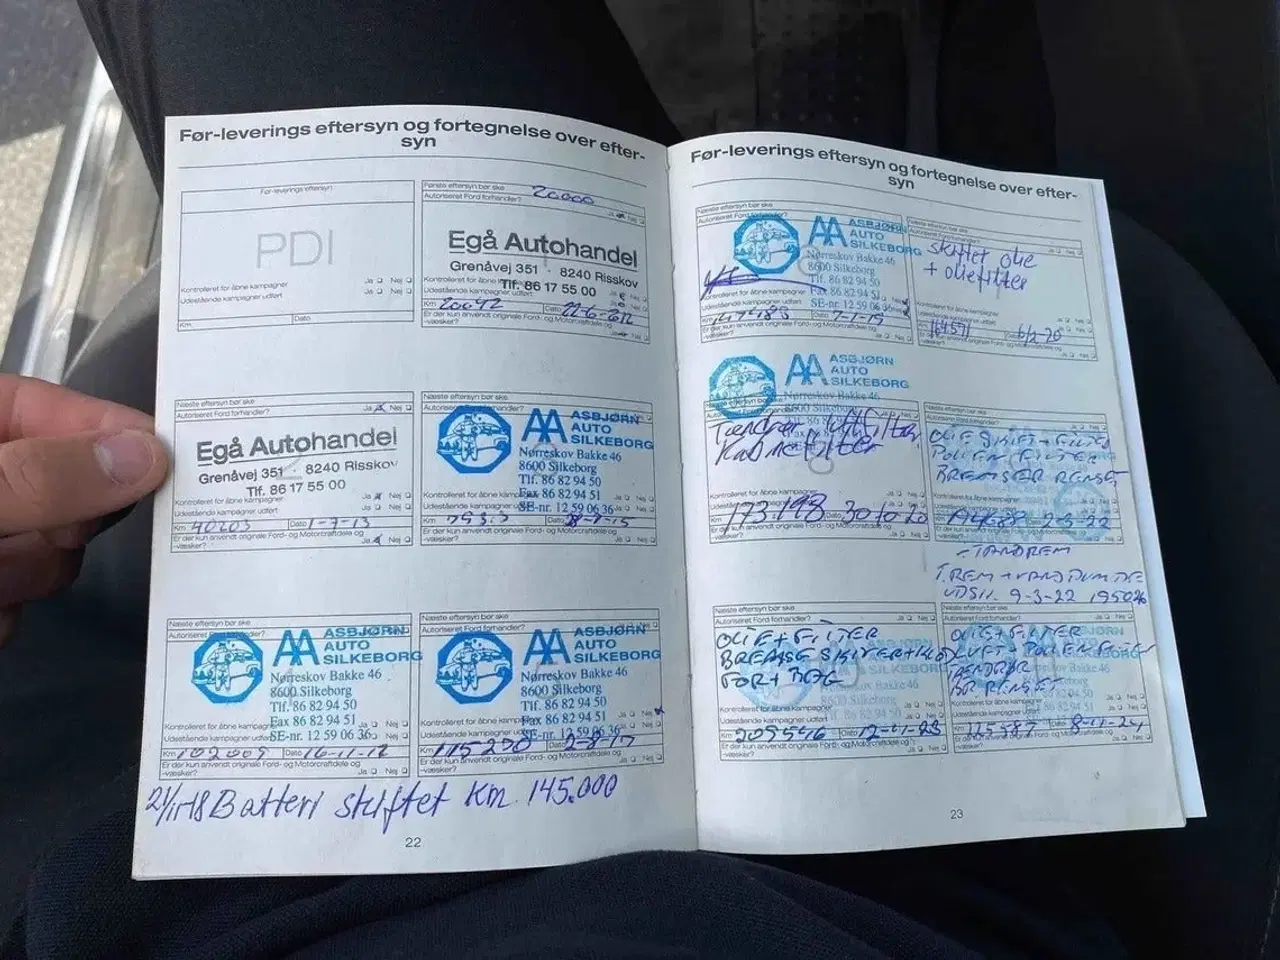 Før-leverings eftersyn og fortegnelse over efter-
syn
Før-leverings eftersyn!
PDI
Kontrolleret for åbne kampagner
Udestående kampagner udført
Ja Nej
Ja Nej
Km
Dato
Første eftersyn bør ske 20000
Autoriseret Ford forhandler?
Ja Nej
Egå Autohandel
Grenåvej 351 · 8240 Risskov
Tlf. 86 17 55 00
Km 20042 Dato 22-6-212
Er der kun anvendt originale Ford- og Motorcraftdele og
-væsker?
Næste eftersyn bør ske
Autoriseret Ford forhandler? Ja Nej
Egå Autohandel
Grenåvej 351 · 8240 Risskov
Tlf. 86 17 55 00
Kontrolleret for åbne kampagner
Udestående kampagner udført
Km 40203 Dato 1-7-13
Er der kun anvendt originale Ford- og Motorcraftdele og
-væsker?
Næste eftersyn bør ske
AA ASBJØRN
AUTO
SILKEBORG
Nørreskov Bakke 46
8600 Silkeborg
Tlf. 86 82 94 50
Fax 86 82 94 51
SE-nr. 12 59 06 36
Er der kun anvendt originale Ford- og Motorcraftdele og
-væsker?
Næste eftersyn bør ske
Autoriseret Ford forhandler?
AA ASBJØRN
AUTO
SILKEBORG
Nørreskov Bakke 46
8600 Silkeborg
Tlf. 86 82 94 50
Fax 86 82 94 51
SE-nr. 12 59 06 36
Km 102009 Dato
Er der kun anvendt originale Ford- og Motorcraftdele og
-væsker?
Næste eftersyn bør ske
Autoriseret Ford forhandler?
AA ASBJØRN
AUTO
SILKEBORG
Nørreskov Bakke 46
8600 Silkeborg
Tlf. 86 82 94 50
Fax 86 82 94 51
SE-nr. 12 59 06 36
Km 115230 Dato 2-8-17
Er der kun anvendt originale Ford- og Motorcraftdele og
-væsker?
Batteri skiftet Km. 145.000
22
Før-leverings eftersyn og fortegnelse over efter-
syn
Næste eftersyn bør ske
Autoriseret Ford forhandler?
AA ASBJØRN
AUTO
SILKEBORG
Nørreskov Bakke 46
8600 Silkeborg
Tlf. 86 82 94 50
Fax 86 82 94 51
SE-nr. 12 59 06 36
Km 147483 Dato 7-1-19
Er der kun anvendt originale Ford- og Motorcraftdele og
-væsker?
Næste eftersyn bør ske
skiftet olie
+ oliefilter
Kontrolleret for åbne kampagner
Udestående kampagner udført
Km 164571 Dato 6/2-20
Er der kun anvendt originale Ford- og Motorcraftdele og
-væsker?
AA ASBJØRN
AUTO
SILKEBORG
Nørreskov Bakke 46
8600 Silkeborg
Tændrør luftfilter
Kabinefilter
Kontrolleret for åbne kampagner
Udestående kampagner udført
Km 173.198 Dato 30-10-20
Er der kun anvendt originale Ford- og Motorcraftdele og
-væsker?
OLIE SKIFT + FILTER
POLLEN FILTER
BREMSER RENSET
2-3-22
Er der kun anvendt originale Ford- og Motorcraftdele og
-væsker?
- TANDREM
T.REM + VANDPUMPE
UDSK. 9-3-22 195026
Næste eftersyn bør ske
Autoriseret Ford forhandler?
OLIE + FILTER
BREMSE SKIVER + KLO
FOR + BAG
Kontrolleret for åbne kampagner
Udestående kampagner udført
Km 209546 Dato
Er der kun anvendt originale Ford- og Motorcraftdele og
-væsker?
Næste eftersyn bør ske
Autoriseret Ford forhandler?
OLIE + FILTER
LUFT + POLLEN FILTER
TÆNDRØR
Kontrolleret for åbne kampagner
Udestående kampagner udført
Km 225387 Dato 8-11-24
Er der kun anvendt originale Ford- og Motorcraftdele og
-væsker?
23